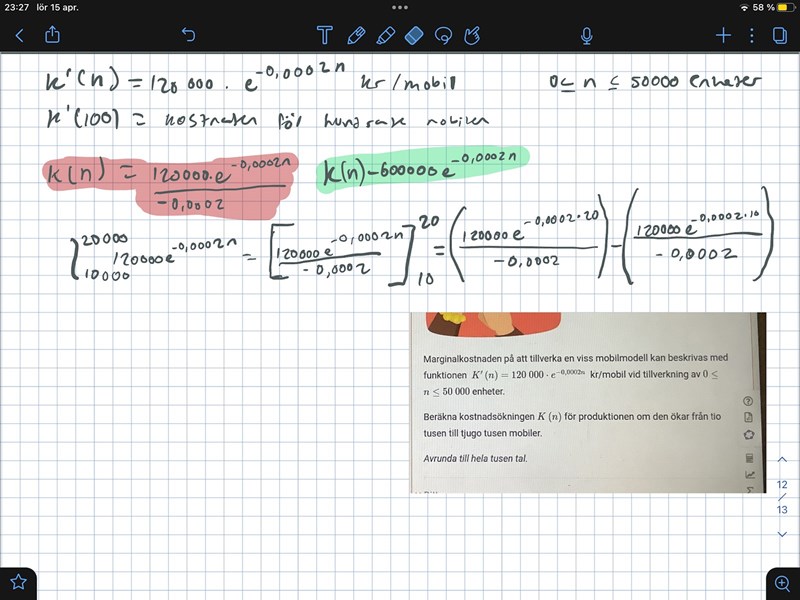 23:27 lör 15 apr.
58 %
K'(n) = 120 000 · e^-0,0002n kr/mobil 0 ≤ n ≤ 50000 enheter
K'(100) = kostnaden för hundrade mobilen
K(n) = 120000·e^-0,0002n / -0,0002 K(n)-600000e^-0,0002n
∫ 20000 10000 120000e^-0,0002n = [120000e^-0,0002n / -0,0002] 20 10 = (120000e^-0,0002·20 / -0,0002) - (120000e^-0,0002·10 / -0,0002)
Marginalkostnaden på att tillverka en viss mobilmodell kan beskrivas med
funktionen K'(n) = 120 000 · e^-0,0002n kr/mobil vid tillverkning av 0 ≤
n ≤ 50 000 enheter.
Beräkna kostnadsökningen K (n) för produktionen om den ökar från tio
tusen till tjugo tusen mobiler.
Avrunda till hela tusen tal.
12
/
13